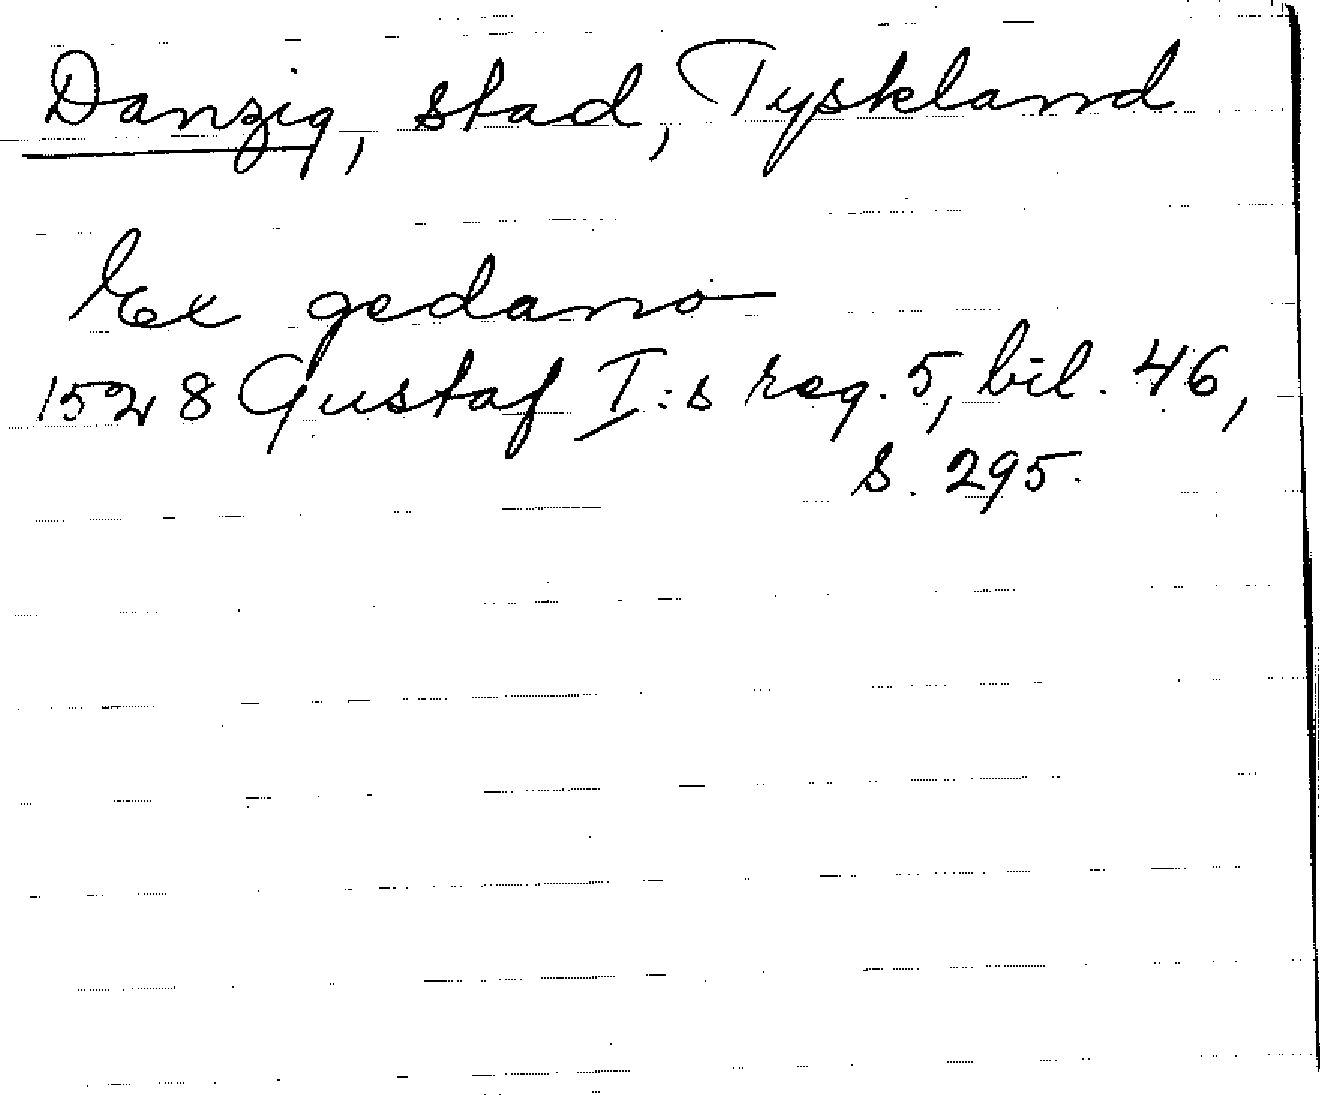 Danzig, stad, Tyskland
Ex gedano
1528 Gustaf I:s reg. 5, bil. 46,
s. 295.